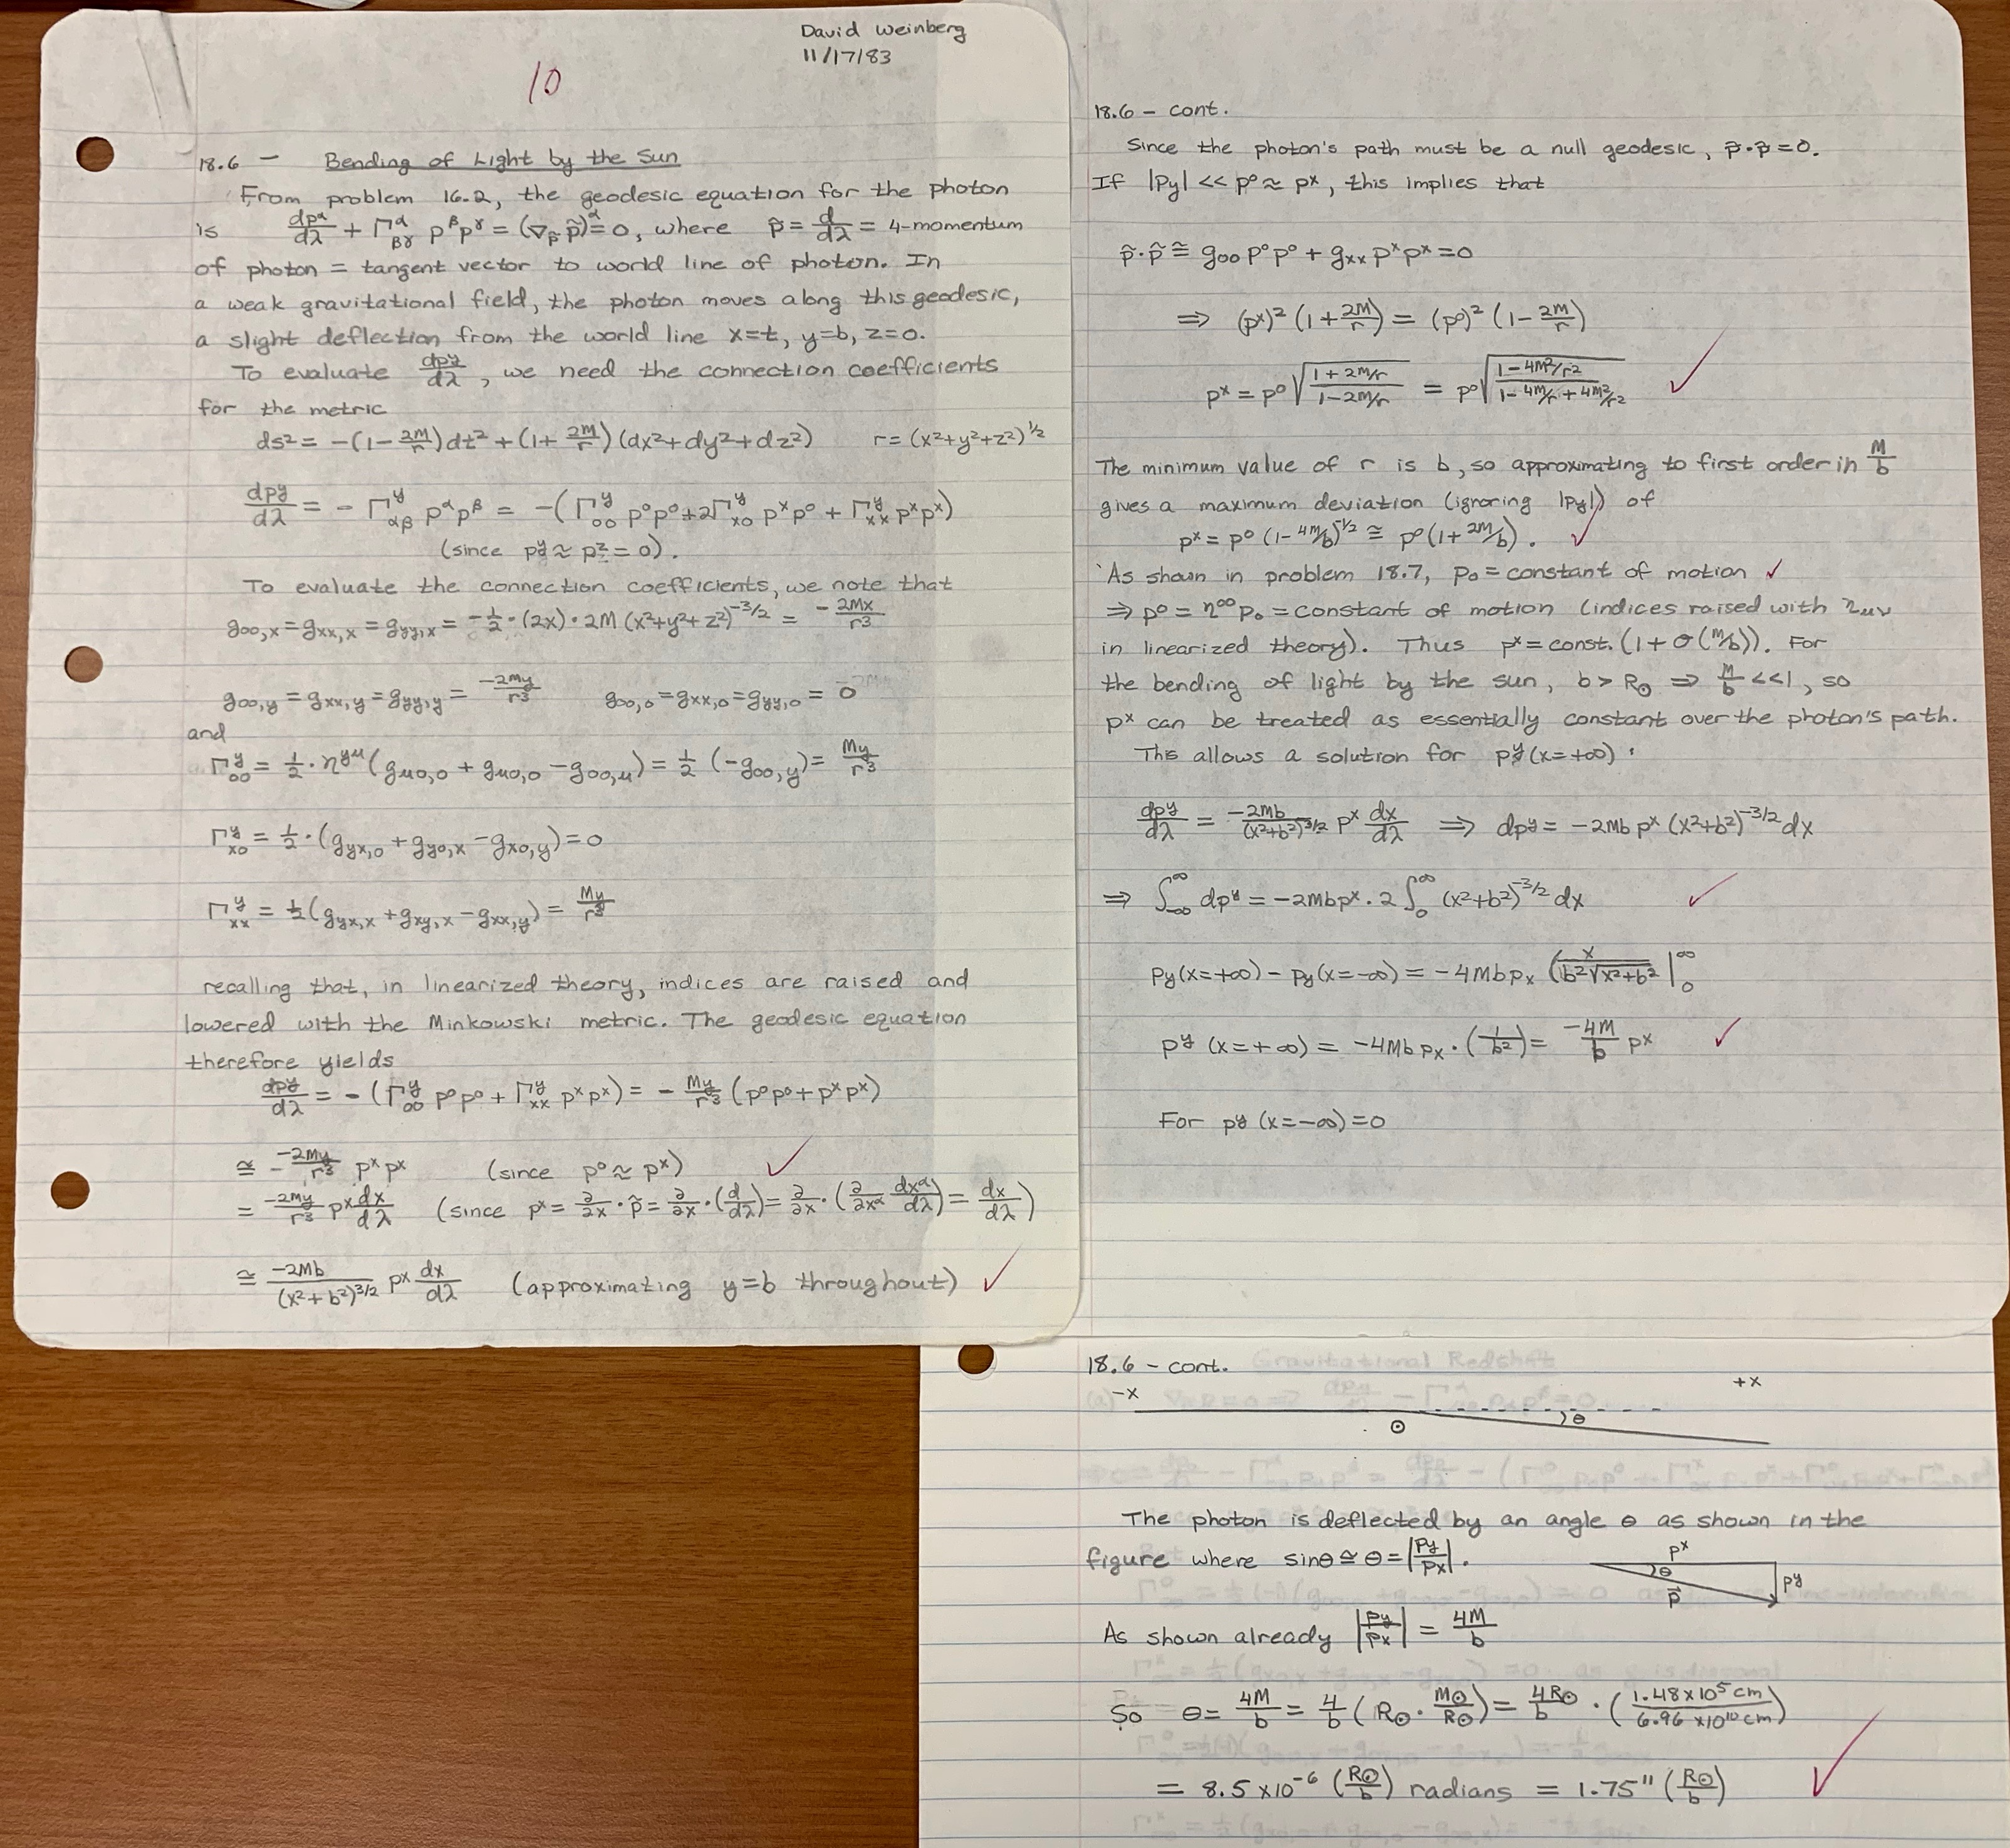 David Weinberg
11/17/83
10
18.6 — Bending of Light by the Sun
From problem 16.2, the geodesic equation for the photon
is dp^α/dλ + Γ^α_βγ p^β p^γ = (∇_p̃ p̃)^α = 0, where p̃ = d/dλ = 4-momentum
of photon = tangent vector to world line of photon. In
a weak gravitational field, the photon moves along this geodesic,
a slight deflection from the world line x=t, y=b, z=0.
To evaluate dp^y/dλ, we need the connection coefficients
for the metric
ds² = -(1-2M/r)dt² + (1+2M/r)(dx²+dy²+dz²) r=(x²+y²+z²)^1/2
dp^y/dλ = -Γ^y_αβ p^α p^β = -(Γ^y_00 p⁰p⁰ + 2Γ^y_x0 p^x p⁰ + Γ^y_xx p^x p^x)
(since p^y ≈ p^z = 0).
To evaluate the connection coefficients, we note that
g_00,x = g_xx,x = g_yy,x = -1/2·(2x)·2M(x²+y²+z²)^-3/2 = -2Mx/r³
g_00,y = g_xx,y = g_yy,y = -2My/r³ g_00,0 = g_xx,0 = g_yy,0 = 0
and
Γ^y_00 = 1/2·η^yμ(g_μ0,0 + g_μ0,0 - g_00,μ) = 1/2(-g_00,y) = My/r³
Γ^y_x0 = 1/2·(g_yx,0 + g_y0,x - g_x0,y) = 0
Γ^y_xx = 1/2(g_yx,x + g_xy,x - g_xx,y) = My/r³
recalling that, in linearized theory, indices are raised and
lowered with the Minkowski metric. The geodesic equation
therefore yields
dp^y/dλ = -(Γ^y_00 p⁰p⁰ + Γ^y_xx p^x p^x) = -My/r³ (p⁰p⁰ + p^x p^x)
≅ -2My/r³ p^x p^x (since p⁰ ≈ p^x) ✓
= -2My/r³ p^x dx/dλ (since p^x = ∂/∂x · p̃ = ∂/∂x · (d/dλ) = ∂/∂x · (∂/∂x^α dx^α/dλ) = dx/dλ)
≅ -2Mb/(x²+b²)^3/2 p^x dx/dλ (approximating y=b throughout) ✓
18.6 — cont.
Since the photon's path must be a null geodesic, p̃·p̃=0.
If |p^y| << p⁰ ≈ p^x, this implies that
p̃·p̃ ≅ g_00 p⁰p⁰ + g_xx p^x p^x = 0
⇒ (p^x)² (1+2M/r) = (p⁰)² (1-2M/r)
p^x = p⁰ √((1+2M/r)/(1-2M/r)) = p⁰ √((1-4M²/r²)/(1-4M/r+4M²/r²)) ✓
The minimum value of r is b, so approximating to first order in M/b
gives a maximum deviation (ignoring |p^y|) of
p^x = p⁰ (1-4M/b)^-1/2 ≅ p⁰(1+2M/b). ✓
As shown in problem 18.7, p₀ = constant of motion ✓
⇒ p⁰ = η⁰⁰p₀ = constant of motion (indices raised with η_μν
in linearized theory). Thus p^x = const.(1+O(M/b)). For
the bending of light by the sun, b > R⊙ ⇒ M/b <<1, so
p^x can be treated as essentially constant over the photon's path.
This allows a solution for p^y(x=+∞):
dp^y/dλ = -2Mb/(x²+b²)^3/2 p^x dx/dλ ⇒ dp^y = -2Mb p^x (x²+b²)^-3/2 dx
⇒ ∫_-∞^∞ dp^y = -2Mbp^x · 2 ∫_0^∞ (x²+b²)^-3/2 dx ✓
p^y(x=+∞) - p^y(x=-∞) = -4Mbp_x (x/(b²√(x²+b²)) |_0^∞
p^y (x=+∞) = -4Mb p_x · (1/b²) = -4M/b p^x ✓
For p^y (x=-∞)=0
18.6 — cont.
-x +x
⊙ θ
The photon is deflected by an angle θ as shown in the
figure where sinθ ≅ θ = |p^y/p^x|.
p^x
θ
p⃗ p^y
As shown already |p^y/p^x| = 4M/b
So θ = 4M/b = 4/b (R⊙ · M⊙/R⊙) = 4R⊙/b · (1.48×10⁵ cm / 6.96×10¹⁰ cm)
= 8.5×10⁻⁶ (R⊙/b) radians = 1.75" (R⊙/b) ✓